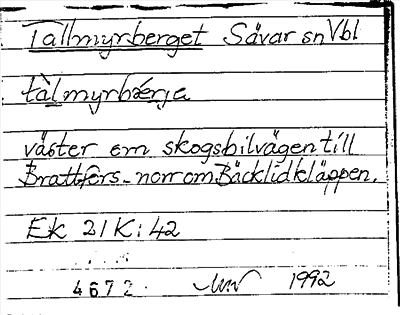 Tallmyrberget Sävar sn Vbl
tàlmyrbǽrja
väster om skogsbilvägen till
Brattfors norr om Bäcklidkläppen.
Ek 21K:42
4672. 1992